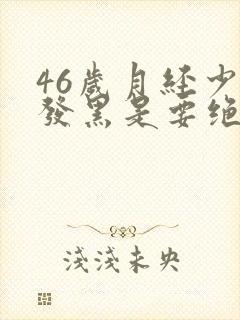 46歲月经少
發黑是要绝
淺淺未央